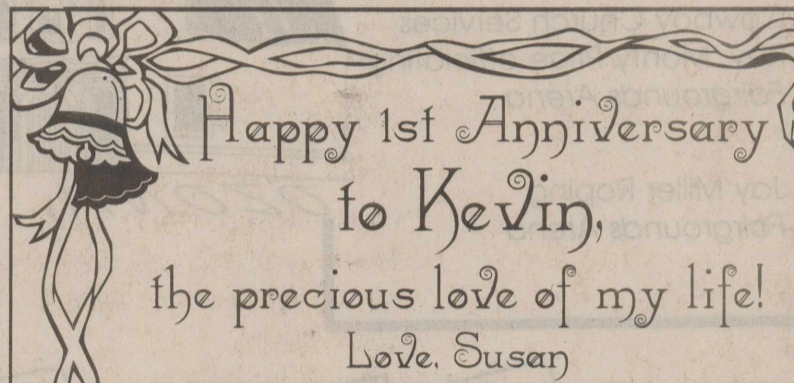 Happy 1st Anniversary
to Kevin,
the precious love of my life!
Love, Susan